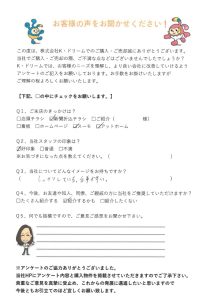 お客様の声をお聞かせください！
この度は、株式会社K・ドリームでのご購入・ご売却誠にありがとうございます。
当社でご購入・ご売却の際、ご不満な点などはございませんでしたでしょうか？
K・ドリームでは、お客様のニーズを理解し、より良い会社に改善していけるよう
アンケートのご記入をお願いしております。お手数をお掛けいたしますが
ご理解の程よろしくお願いいたします。
【下記、□の中にチェックをお願いします。】
Q1、ご来店のきっかけは？
□店頭チラシ □新聞折込チラシ □ご紹介（ 様）
□看板 □ホームページ □スーモ □アットホーム
Q2、当社スタッフの印象は？
□好印象 □普通 □不満
※お気づきになった点を教えてください。
Q3、当社についてどんなイメージをお持ちですか？
Q4、今後、お友達や知人、同僚、ご親戚の方に当社をご推薦していただけますか？
□たくさん紹介する □紹介するかも □紹介できない
Q5、何でも結構ですので、ご意見ご感想をお聞かせ下さい。
※アンケートのご協力ありがとうございました。
当社HPにアンケート内容と購入物件を掲載させていただきますのでご了承下さい。
貴重なご意見を真摯に受止め、これからの発展に邁進したいと思いますので
今後ともお引立てのほど宜しくお願い致します。